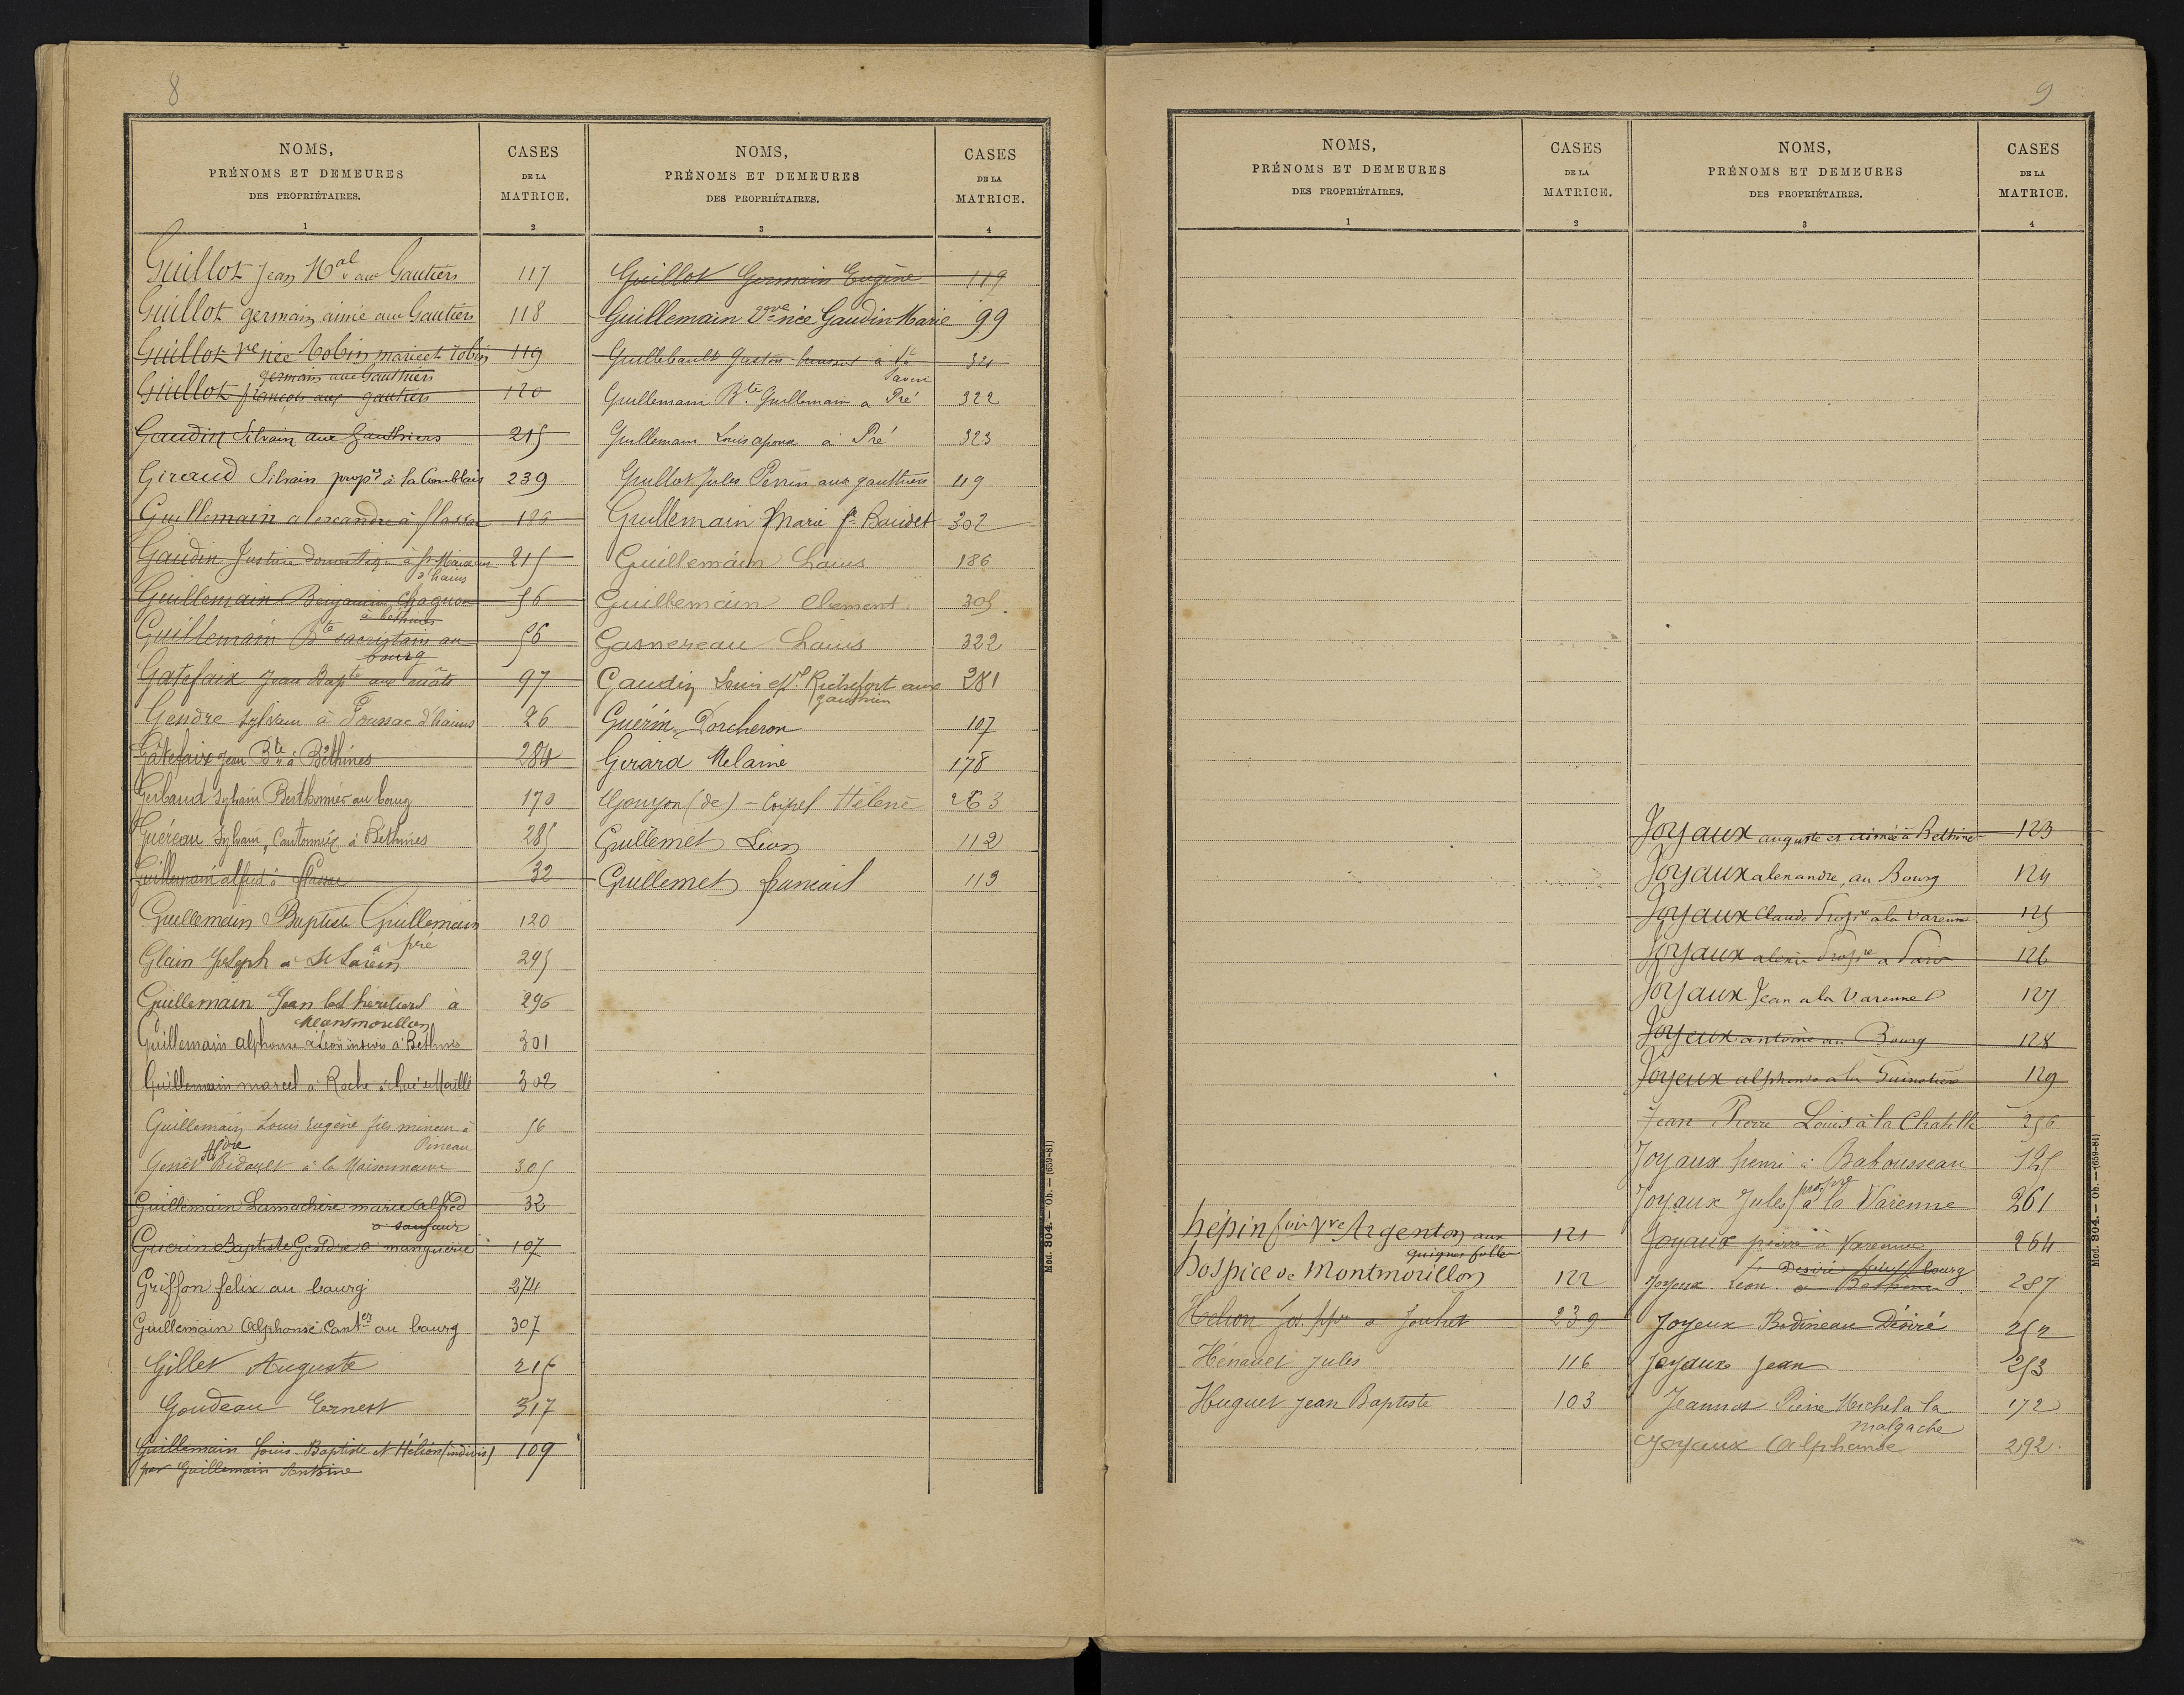 8
NOMS,
PRÉNOMS ET DEMEURES
DES PROPRIÉTAIRES.
1
CASES
DE LA
MATRICE.
2
Guillot Jean Mal aux Gautiers 117
Guillot germain aimé aux Gautiers 118
Guillot Ve née Tobin mariee Tobin 119
germain aux Gauthiers
Guillot françois aux gautiers 120
Gaudin Silvain aux Gauthiers 215
Giraud Silvain propre à la Comblais 239
Guillemain alexandre à flassac 186
Gaudin Justin domestique à St Maixent 215
d'haims
Guillemain Benjamin Chagnon 56
à bethines
Guillemain Bte sacristain au 56
bourg
Gatefaix Jean Bapte aux mâts 97
Gendre Sylvain à Foussac d'haims 26
Gâtefaix Jean Bte à Béthines 284
Gerbaud Sylvain Berthomier au bourg 170
Guéreau Sylvain, Cantonnier à Béthines 285
Guillemain alfred à flassac 32
Guillemain Baptiste Guillemain 120
à pré
Glain Joseph à St Savin 295
Guillemain Jean les héritiers à 296
Meansmoullon
Guillemain Alphonse à Bethines 301
Guillemain marcel à Roche de Maillé 302
Guillemain Louis Eugène fils mineur à 56
Pineau
Genêt Bidault à la Maisonneuve 305
Guillemain Lamachère marie alfred 32
Guerin Baptiste Gendre à manguerie 107
Griffon felix au bourg 274
Guillemain Alphonse Canter au bourg 307
Gillet Auguste 215
Goudeau Ernest 317
Guillemain Louis-Baptiste et Hélion (indivis) 109
par Guillemain Antoine
NOMS,
PRÉNOMS ET DEMEURES
DES PROPRIÉTAIRES.
3
CASES
DE LA
MATRICE.
4
Guillot Germain Eugène 119
Guillemain Vve née Gaudin Marie 99
Guillebault Gaston à St 321
Savin
Guillemain Bte Guillemain a Pré 322
Guillemain Louis à Pré 323
Guillot Jules Perrin aux gauthiers 119
Guillemain Marie fe Baudet 302
Guillemain Louis 186
Guillemain Clement 305
Gasnereau Louis 322
Gaudin Louis Richefort aux 281
gauthiers
Guérin Porcheron 107
Girard Melaine 178
Goujon (de) - Coipel Hélène 263
Guillemet Léon 112
Guillemet francois 113
Mod. 304. — Ob. — (659-81)
9
NOMS,
PRÉNOMS ET DEMEURES
DES PROPRIÉTAIRES.
1
CASES
DE LA
MATRICE.
2
hépin Argenton aux 121
hospice de Montmorillon 122
Helion à Jouhet 239
Hénault Jules 116
Huguet Jean Baptiste 103
NOMS,
PRÉNOMS ET DEMEURES
DES PROPRIÉTAIRES.
3
CASES
DE LA
MATRICE.
4
Joyaux auguste et aimée à Bethines 123
Joyaux alexandre, au Bourg 124
Joyaux Claude propre a la Varenne 125
Joyaux alexis propre a 126
Joyaux Jean a la Varenne 127
Joyeux antoine au Bourg 128
Joyeux alphonse a la 129
Jean Pierre Louis à la Chatille 256
Joyaux henri à Babousseau 125
Joyaux Jules propre à la Varenne 261
Joyaux pierre à Varenne 264
Desiré bourg
Joyeux Léon à Bethines 287
Joyeux Bodineau Désiré 252
Joyaux Jean 253
Jeannot Pierre Michel a la 172
malgache
Joyaux Alphonse 292
Mod. 304. — Ob. — (659-81)